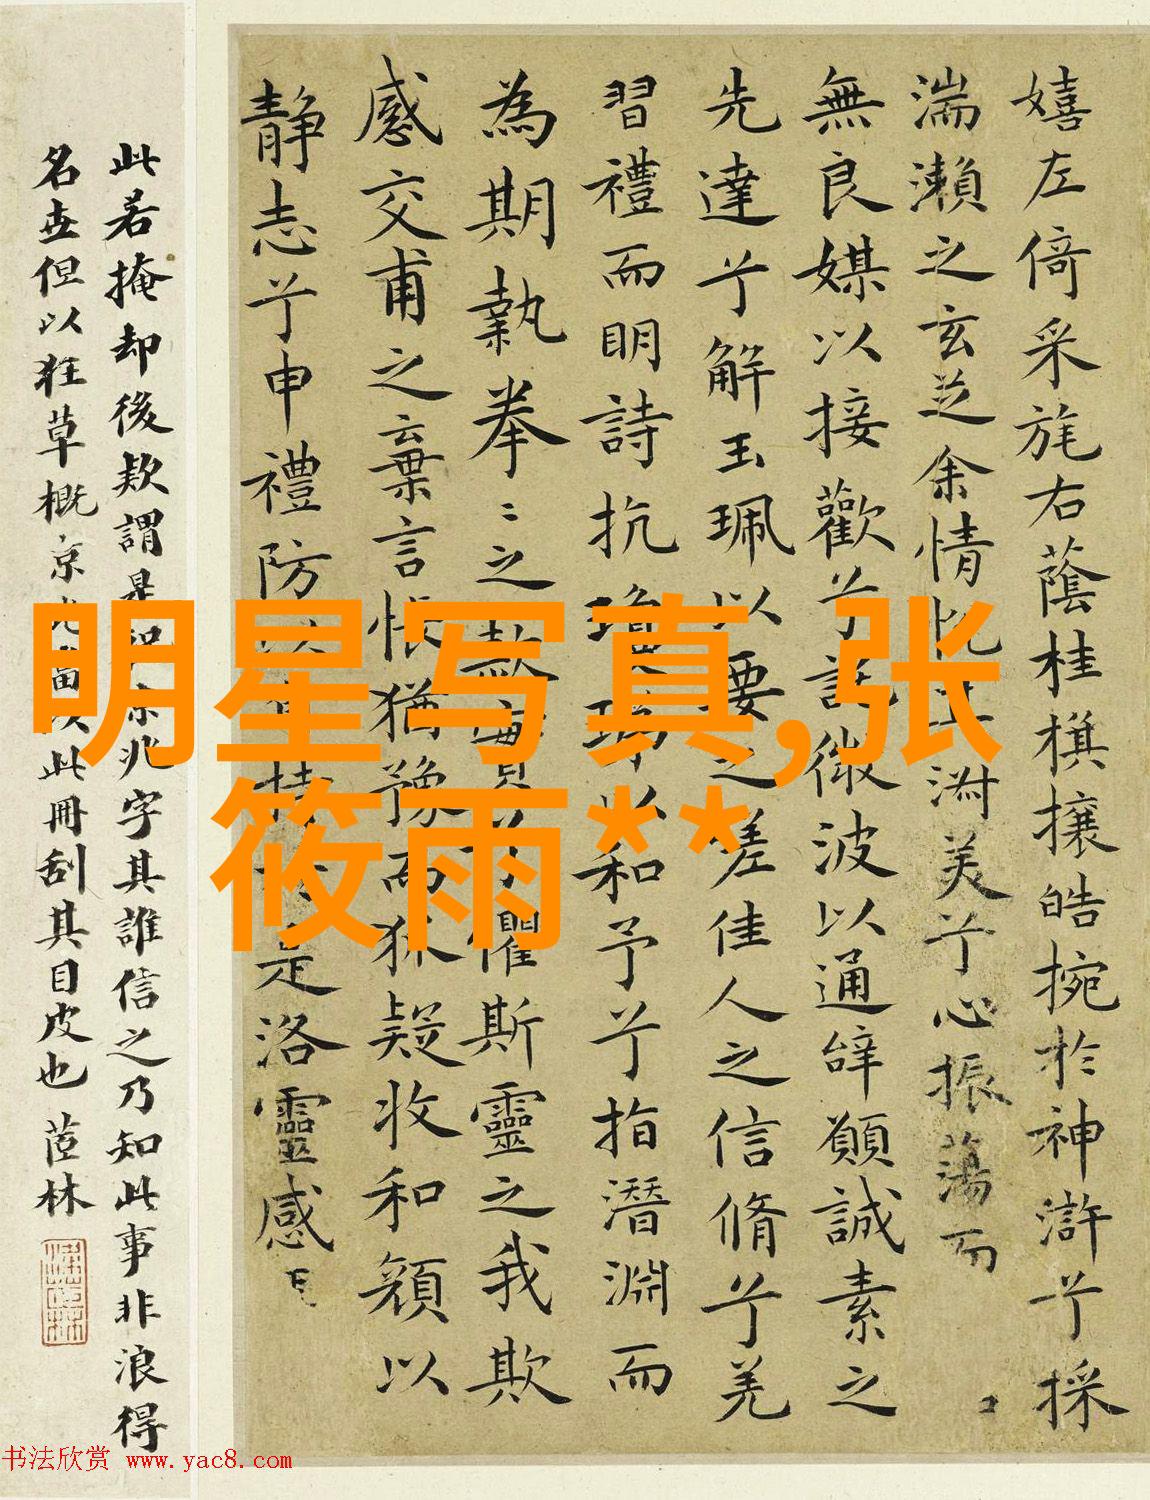 嬉左倚采旄右蔭桂棋攘皓捥於神滸兮採
湍瀨之玄芝余情悦其淑美兮心振蕩而
無良媒以接歡兮託微波以通辝願誠素之
先達兮解玉珮以要之嗟佳人之信脩兮羌
習禮而明詩抗瓊珶以和予兮指潛淵而
為期執拳〻之款實兮懼斯靈之我欺
感交甫之棄言悵猶豫而狐疑收和顏以
静志兮申禮防以自持於是洛靈感
此若掩却後欵謂是祝京兆字其誰信之乃知此事非浪得
名世但以狂草概京兆當以此冊刮其目皮也 茝林
明星写真,张
筱雨**
书法欣赏 www.yac8.com